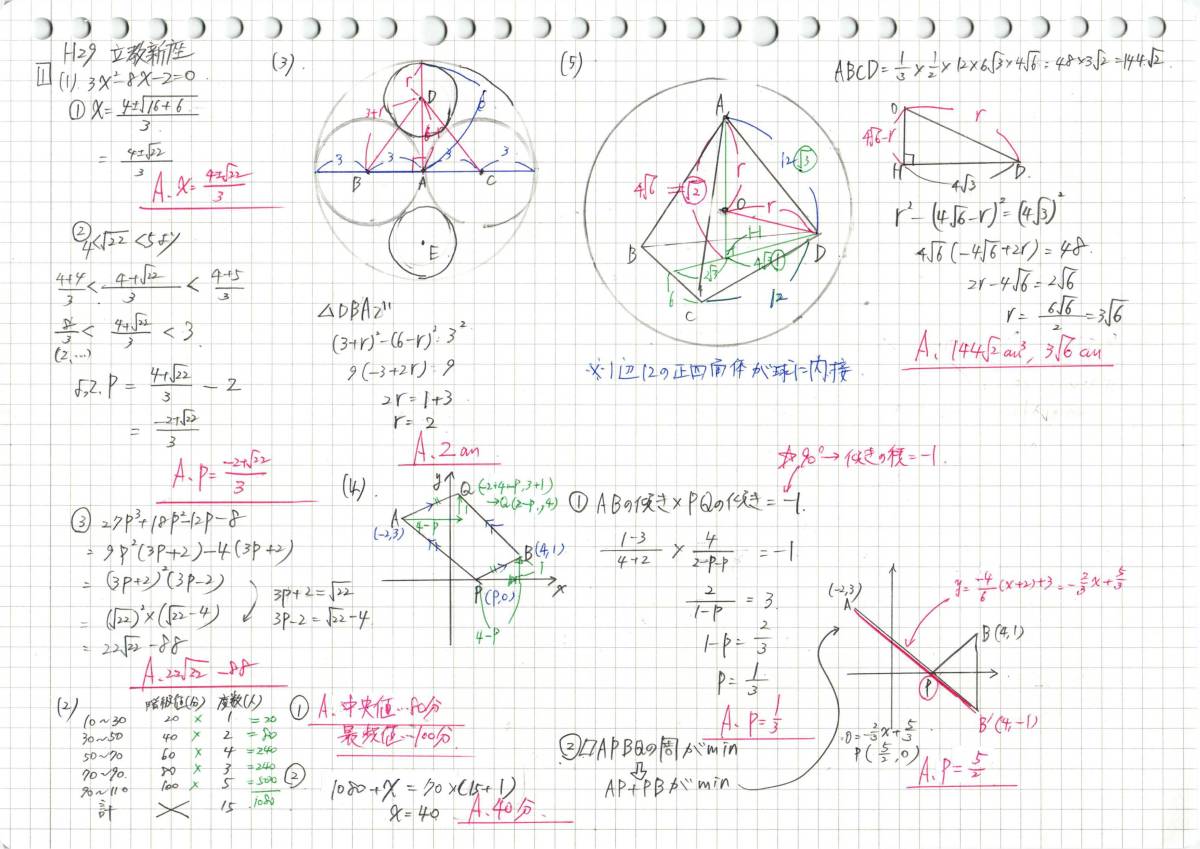 H29 立教新座
1
(1) 3x²-8x-2=0.
① x=(4±√(16+6))/3
= (4±√22)/3
A. x=(4±√22)/3
② 4<√22<5より
(4+4)/3 < (4+√22)/3 < (4+5)/3
8/3 < (4+√22)/3 < 3
(2,...)
よって. P = (4+√22)/3 - 2
= (-2+√22)/3
A. P=(-2+√22)/3
③ 27p³+18p²-12p-8
= 9p²(3p+2)-4(3p+2)
= (3p+2)²(3p-2)
3p+2=√22
= (√22)²×(√22-4)
3p-2=√22-4
= 22√22-88
A. 22√22-88
(2) 階級値(分) 度数(人)
10~30 20 × 1 =20
30~50 40 × 2 =80
50~70 60 × 4 =240
70~90 80 × 3 =240
90~110 100 × 5 =500
計 15 1080
① A. 中央値…80分
最頻値…100分
② 1080+x=70×(15+1)
x=40 A. 40分
(3).
r
D
3+r
6-r
3 3 3 3
B A C
E
△DBAで
(3+r)²-(6-r)²=3²
9(-3+2r)=9
2r=1+3
r=2
A. 2cm
(4).
y
Q (-2+4-p, 3+1)
→Q(2-p, 4)
A
(-2,3)
4-p
1
B(4,1)
1
P(p,0)
x
4-p
① ABの傾き×PQの傾き=-1.
※90°→傾きの積=-1.
(1-3)/(4+2) × 4/(2-p-p) = -1
2/(1-p) = 3
1-p = 2/3
p = 1/3
A. p=1/3
② □APBQの周がmin
AP+PBがmin
(-2,3)
A
y=-4/6(x+2)+3=-2/3x+5/3
B(4,1)
P
B'(4,-1)
0=-2/3x+5/3
P(5/2,0)
A. P=5/2
(5)
A
12 √3
4√6=√2
r
O
r
H
B
D
2√3
4√3 ①
6
C
12
※1辺12の正四面体が球に内接
ABCD=1/3×1/2×12×6√3×4√6=48×3√2=144√2
O
r
4√6-r
H
4√3
D
r²-(4√6-r)²=(4√3)²
4√6(-4√6+2r)=48
2r-4√6=2√6
r=6√6/2=3√6
A. 144√2cm³, 3√6cm